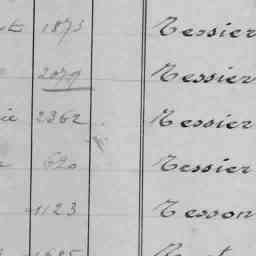 1873 Tessier
2079 Tessier
2362 Tessier
620 Tessier
1123 Tesson